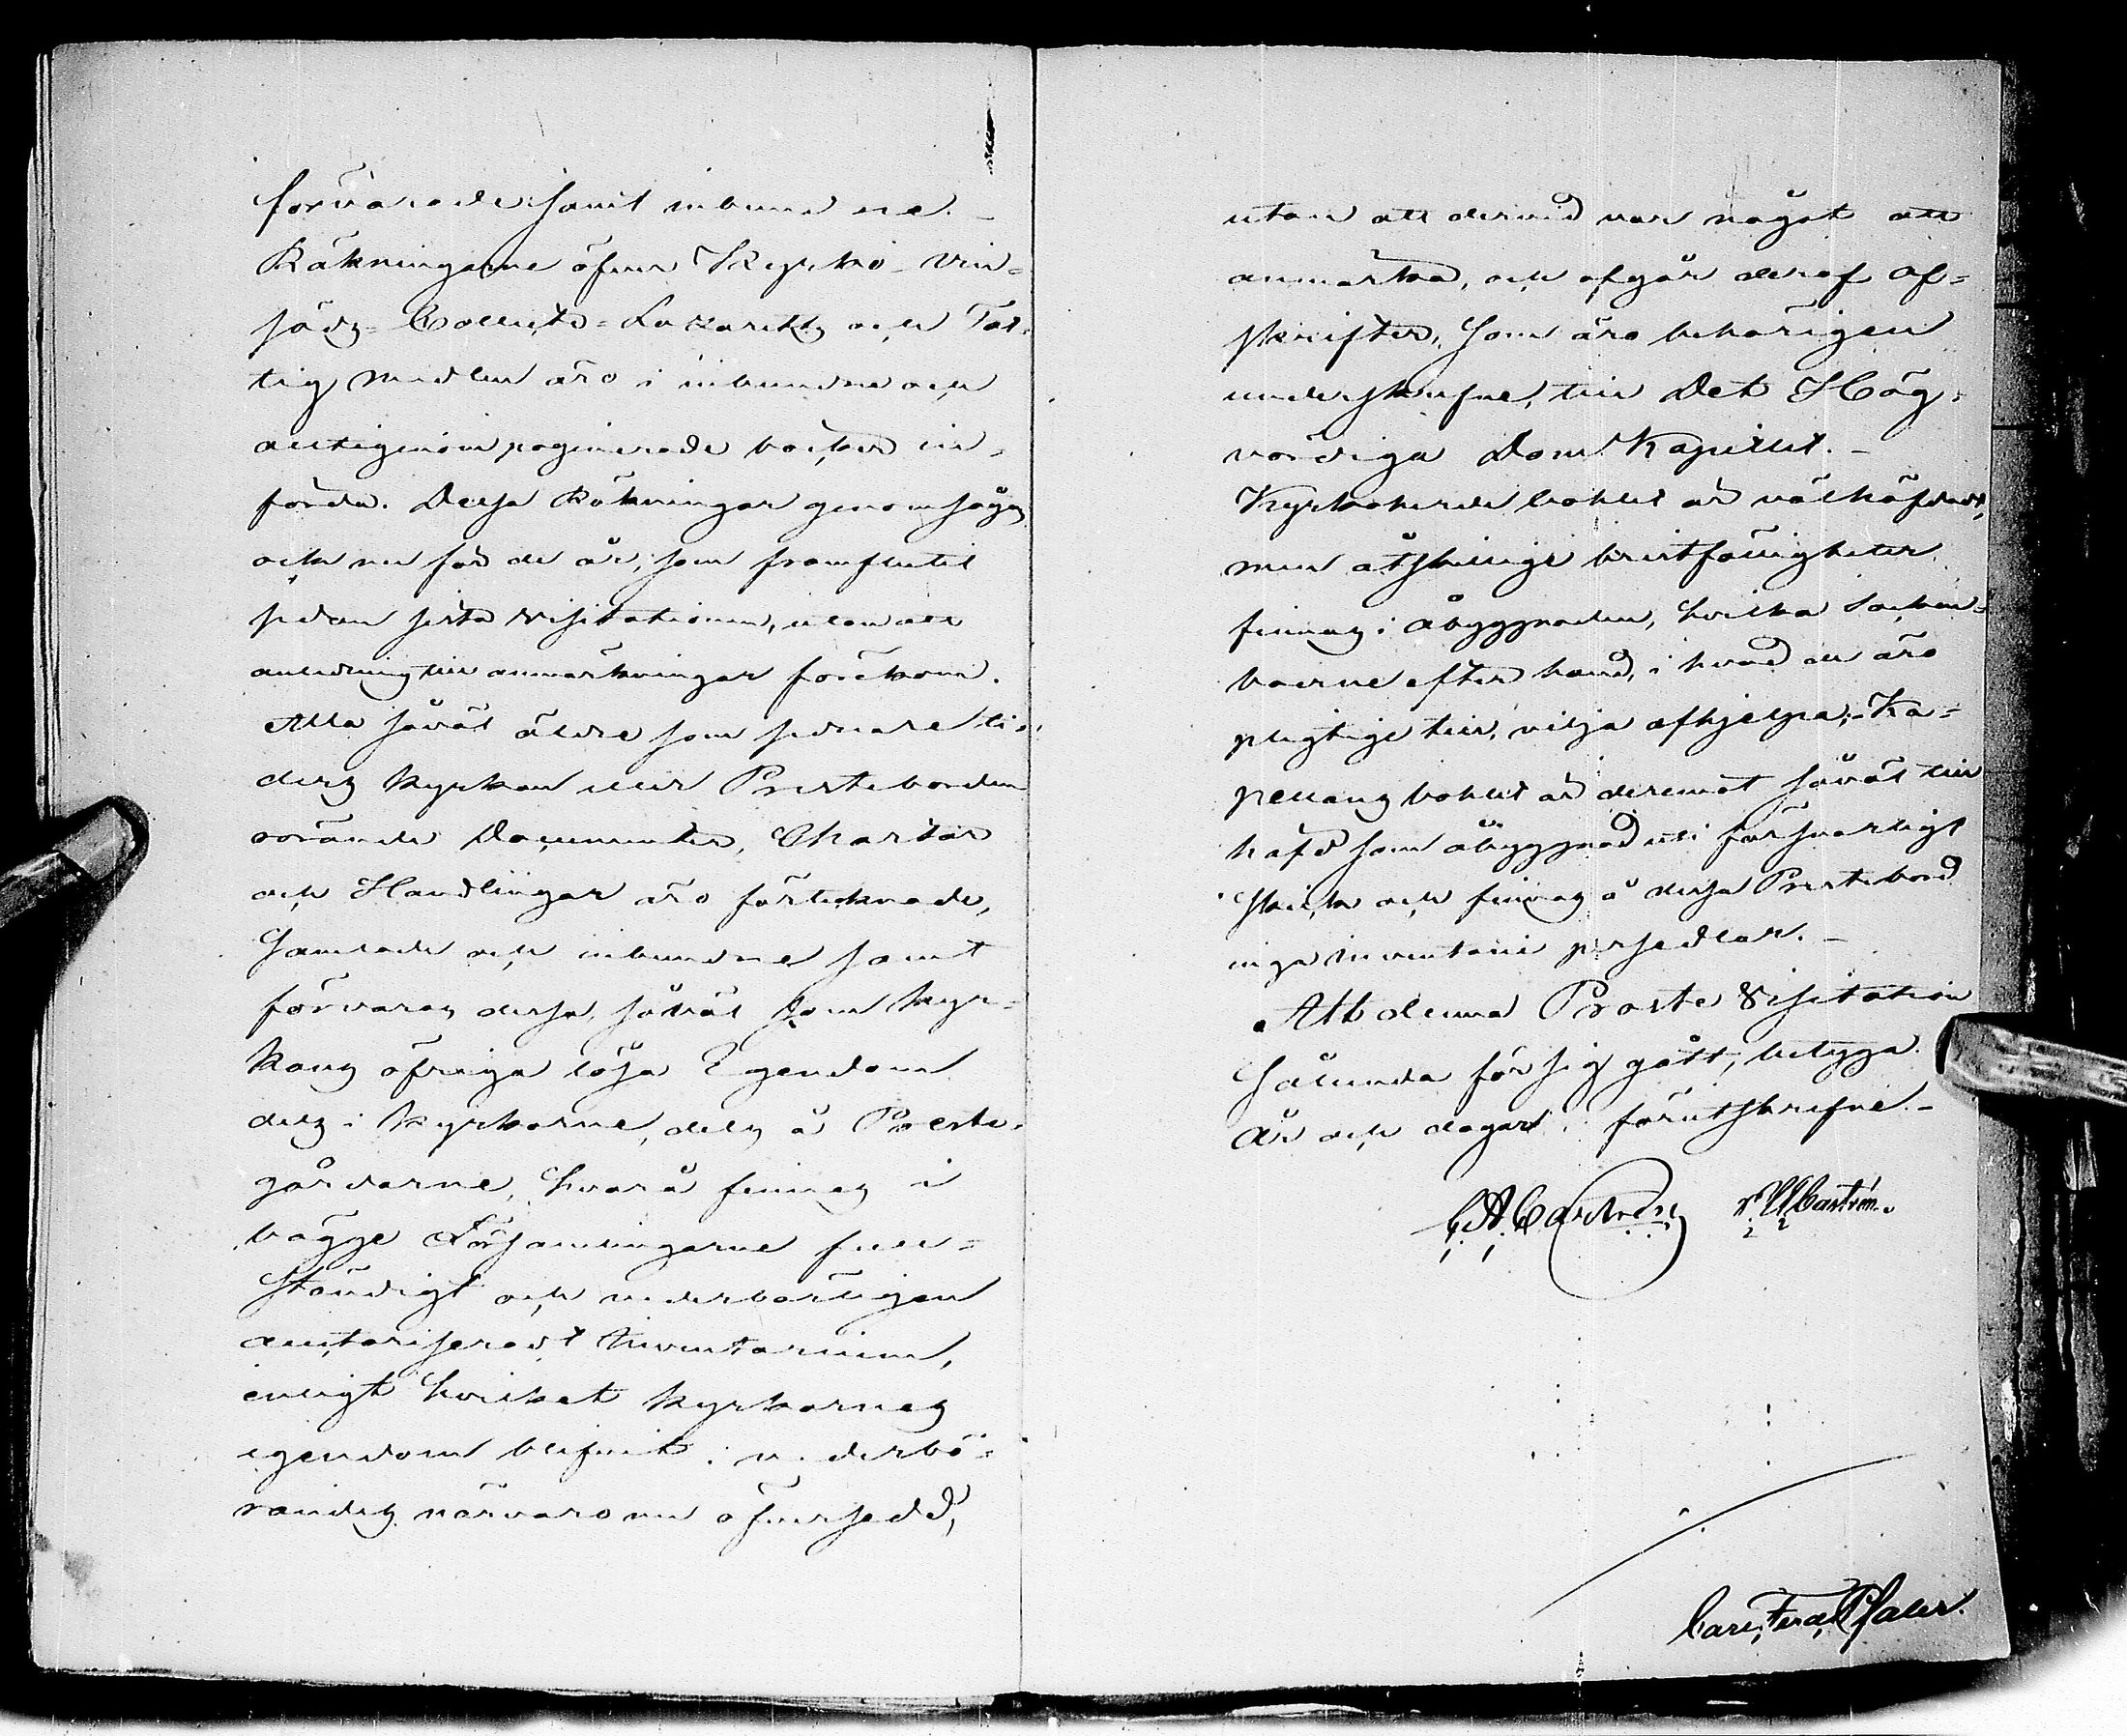 förvarade samt inbundne. –
Räkningarne öfver Kyrko- Vin-
säds- Collect- Lazaretts och Fat-
tig medlen äro i inbundne och
allt igenom paginerade böcker in-
förda. Dessa Räkningar genomsågs
och nu för de år, som framflutit
sedan sista Visitationen, utan att
anledning till anmärkningar förekom.
Alla såväl äldre som sednare ti-
ders kyrkan eller Presteborden
rörande Documenter, Chartor
och Handlingar äro förteknade,
samlade och inbundne samt
förvaras dessa, såväl som kyr-
kans öfriga lösa Egendom
dels i kyrkorne, dels å Preste-
gårdarne, hvarå finnes i
bägge Församlingarne full-
ständigt och vederbörligen
auctoriseradt Inventarium,
enligt hvilket kyrkornes
egendom blifvit i vederbö-
randes närvaro nu öfversedd,
utan att dervid var något att
anmärka, och afgår deraf af-
skrifter, som äro behörigen
underskrifne, till Det Hög-
vördiga Dom Kapitlet. –
Kyrkoherde bohlet är välhäfdadt,
men åtskillige bristfälligheter
finnas i åbyggnaden, hvilka Socken-
boerne efter hand, i hvad de äro
pligtige till, vilja afhjelpa; – Ka-
pellans bohlet är deremot såväl till
häfd som åbyggnad uti försvarligt
skick och finnas å dessa Prestebord
inga inventarii persedlar. –
Att denna Proste Visitation
sålunda för sig gått, betyga
År och dagar förutskrifne. –
C. A. Carlsson Castrén.
Carl Ferd. Pfaler.